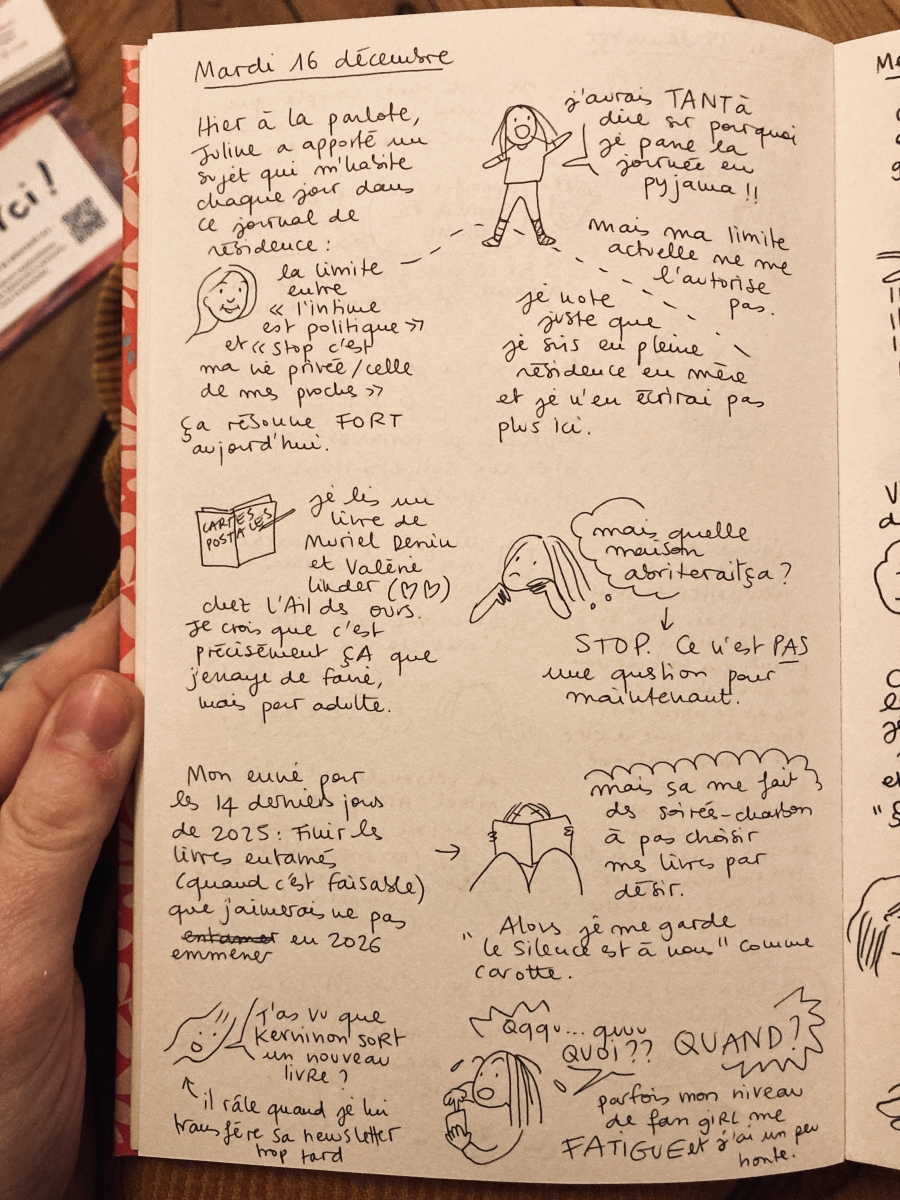 Mardi 16 décembre
Hier à la parlote,
Juline a apporté un
sujet qui m'habite
chaque jour dans
ce journal de
résidence :
la limite
entre
« l'intime
est politique »
et « stop c'est
ma vie privée/celle
de mes proches »
ça résonne FORT
aujourd'hui.
j'aurais TANT à
dire sur pourquoi
je passe la
journée en
pyjama !!
mais ma limite
actuelle ne me
l'autorise
pas.
je note
juste que
je suis en pleine
résidence en mère
et je n'en écrirai pas
plus ici.
CARTES
POSTALES
je lis un
livre de
Muriel Denis
et Valérie
Linder (♡♡)
chez l'Ail des ours.
Je crois que c'est
précisément ÇA que
j'essaye de faire,
mais pour adulte.
mais quelle
maison
abriterait ça ?
STOP. Ce n'est PAS
une question pour
maintenant.
Mon envie pour
les 14 derniers jours
de 2025 : Finir les
livres entamés
(quand c'est faisable)
que j'aimerais ne pas
entamer en 2026
emmener
mais sa me fait
des soirée-charbon
à pas choisir
mes livres par
désir.
Alors je me garde
"le silence est à nous" comme
carotte.
T'as vu que
Kerninon SORT
un nouveau
livre ?
il râle quand je lui
transfère sa newsletter
trop tard
Qqqu... quuu
QUOI ?? QUAND ?
parfois mon niveau
de fan girl me
FATIGUE et j'ai un peu
honte.
ci !